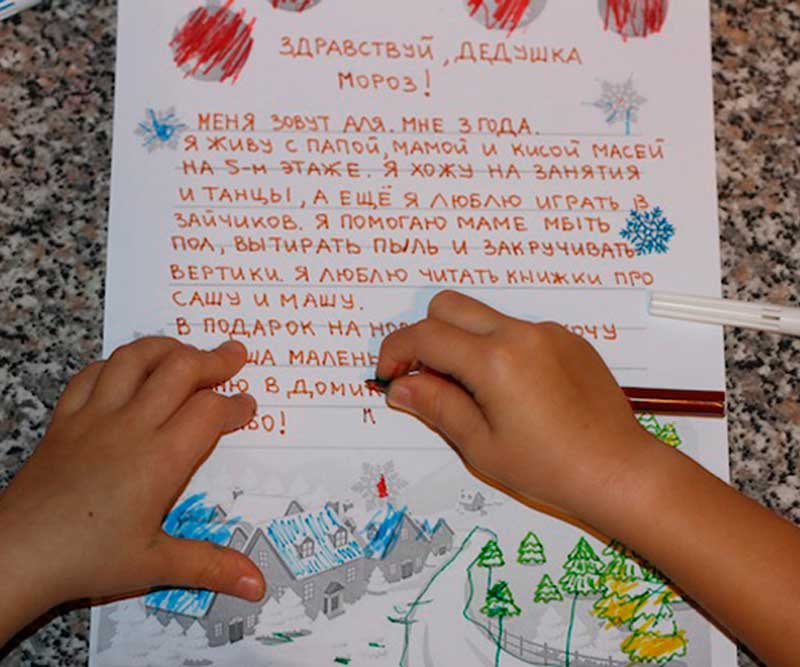 ЗДРАВСТВУЙ, ДЕДУШКА
МОРОЗ!
МЕНЯ ЗОВУТ АЛЯ. МНЕ 3 ГОДА.
Я ЖИВУ С ПАПОЙ, МАМОЙ И КИСОЙ МАСЕЙ
НА 5-М ЭТАЖЕ. Я ХОЖУ НА ЗАНЯТИЯ
И ТАНЦЫ, А ЕЩЁ Я ЛЮБЛЮ ИГРАТЬ В
ЗАЙЧИКОВ. Я ПОМОГАЮ МАМЕ МЫТЬ
ПОЛ, ВЫТИРАТЬ ПЫЛЬ И ЗАКРУЧИВАТЬ
ВЕРТИКИ. Я ЛЮБЛЮ ЧИТАТЬ КНИЖКИ ПРО
САШУ И МАШУ.
В ПОДАРОК НА ХОЧУ
В ДОМИК